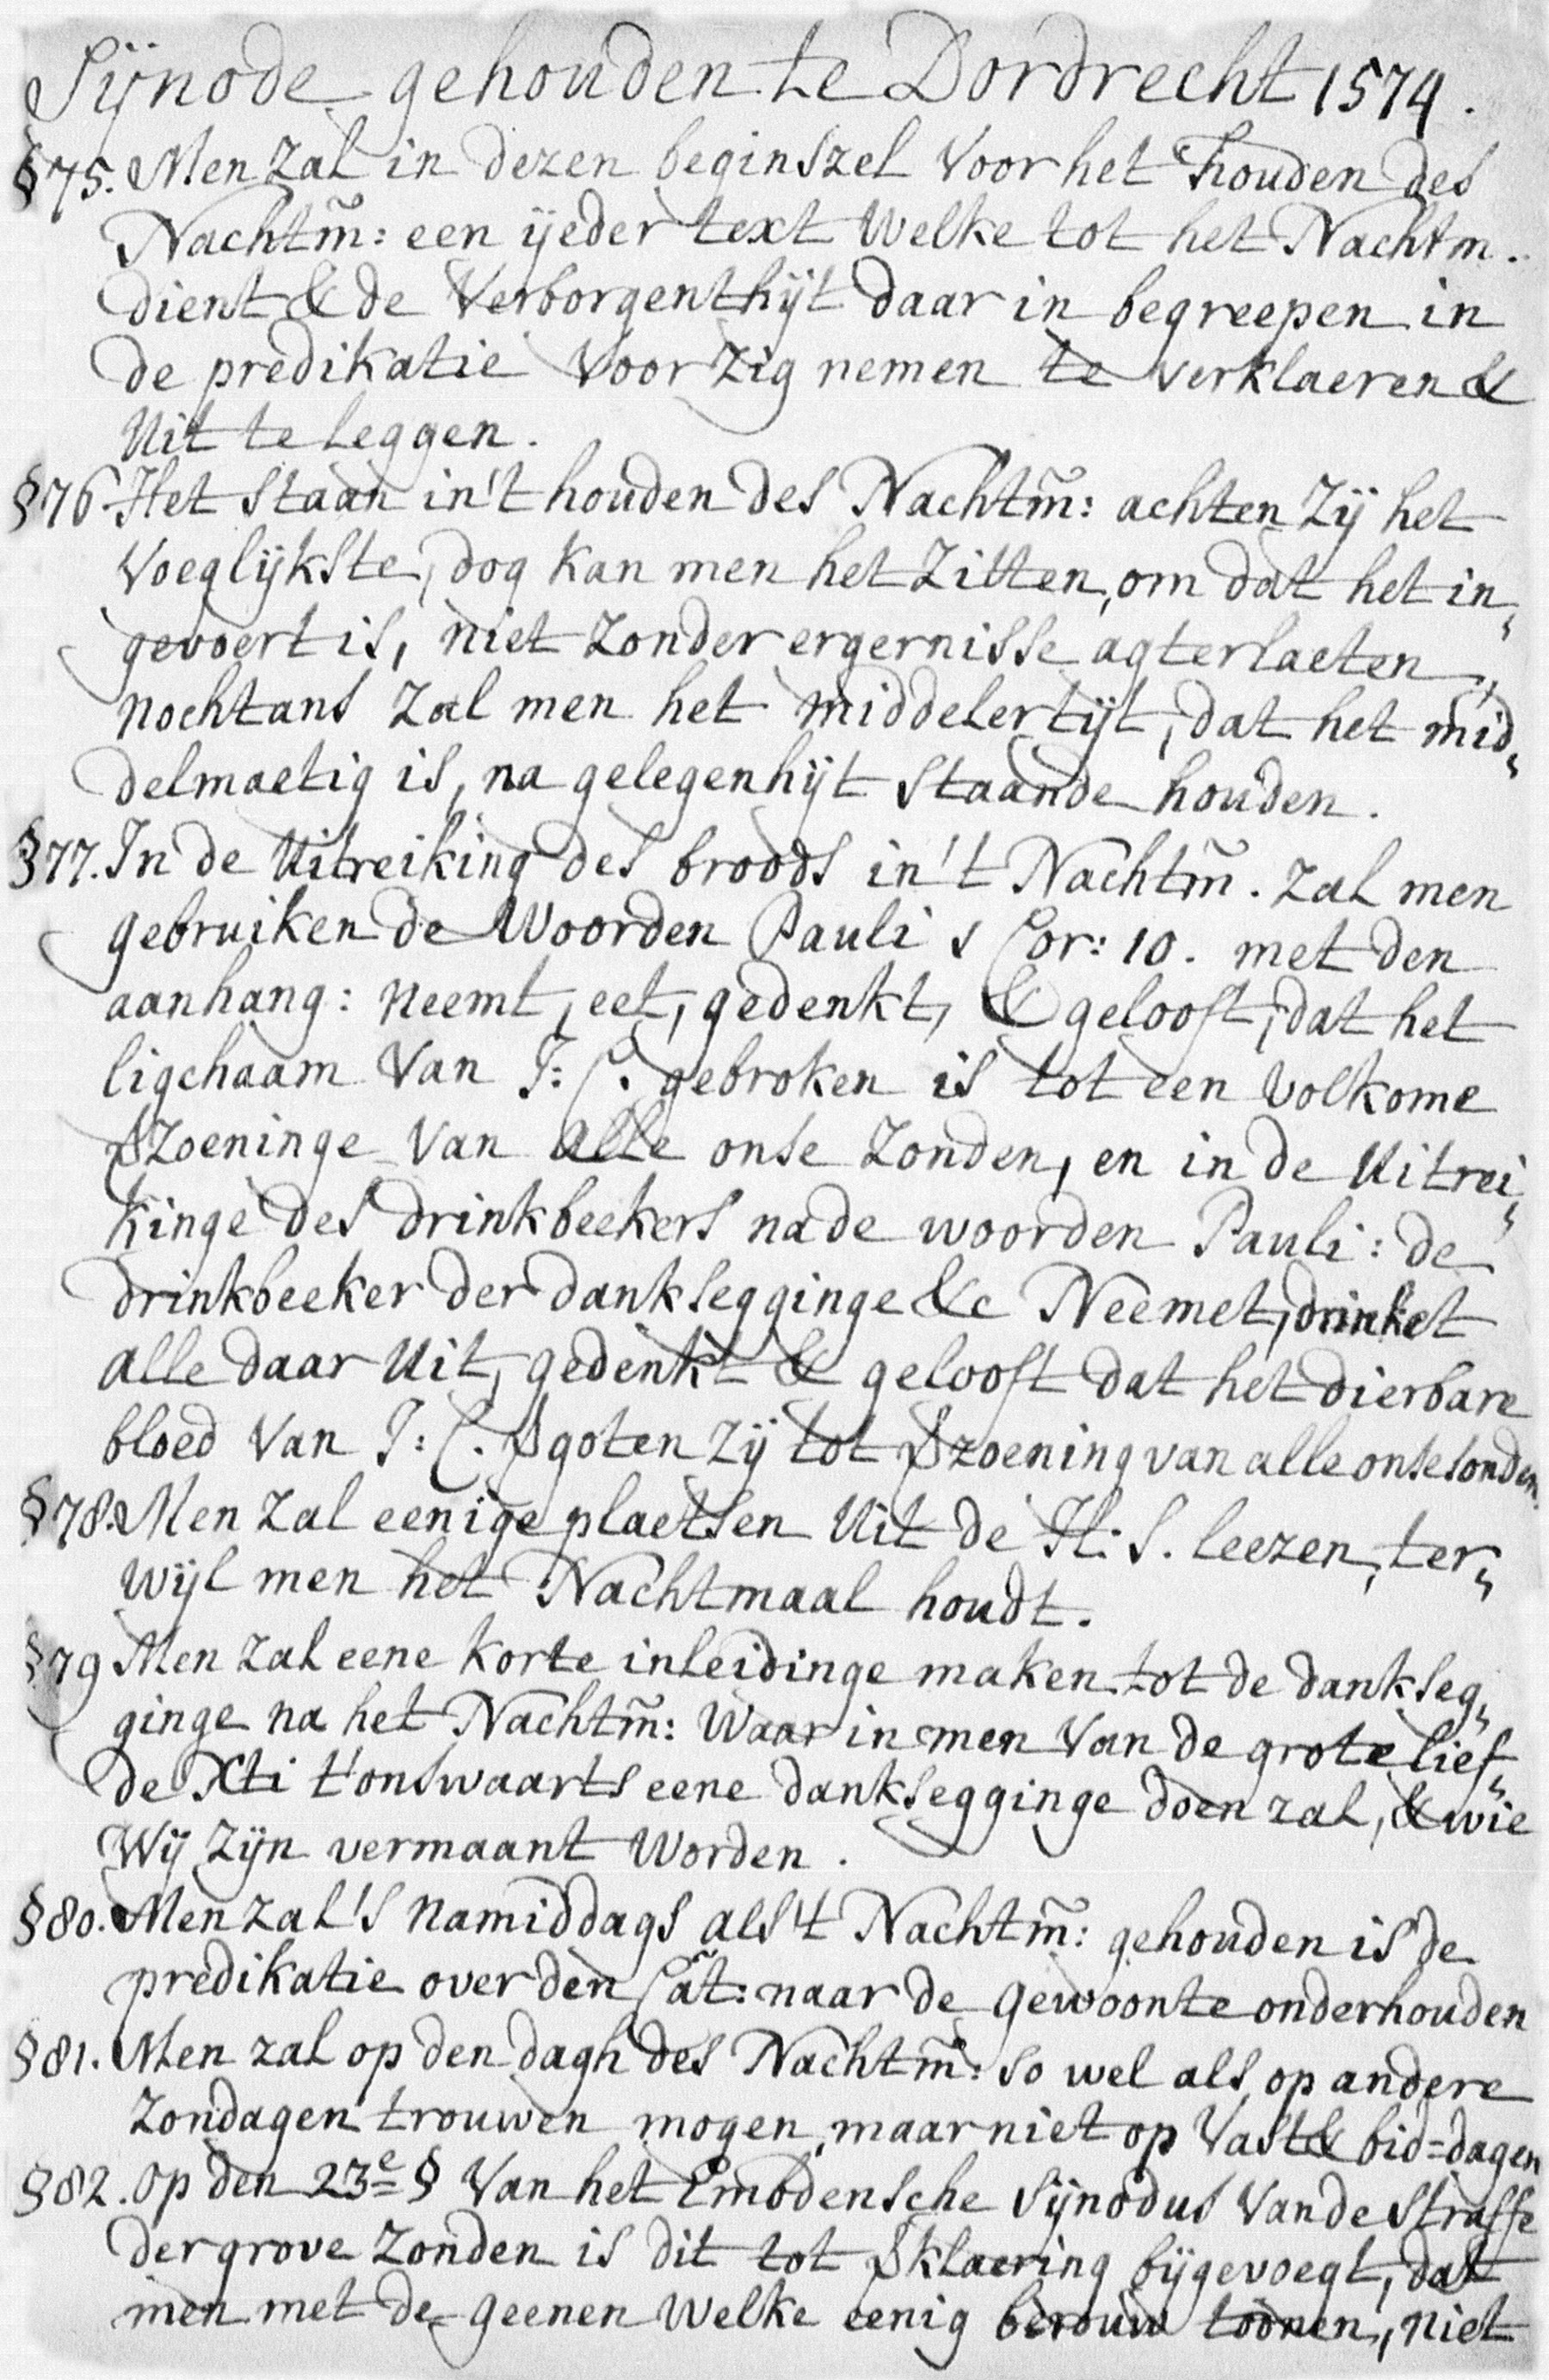 Sijnode gehouden te Dordrecht 1574.
§75. Men zal in dezen beginszel voor het houden des
Nachtm̃: een ijeder text welke tot het Nachtm..
dient & de verborgenthijt daar in begreepen in
de predikatie voor zig nemen te verklaeren &
uit te leggen.
§76 Het staan in't houden des Nachtm̃: achten zij het
voeglijkste, dog kan men het zitten, om dat het in„
gevoert is, niet zonder ergernisse agterlaeten,
nochtans zal men het middelertijt, dat het mid„
delmaetig is, na gelegenhijt staande houden.
§77. In de uitreiking des broods in't Nachtm̃. zal men
gebruiken de woorden Pauli 1 Cor: 10. met den
aanhang: neemt, eet, gedenkt, & gelooft, dat het
ligchaam van J: C. gebroken is tot een volkome
\$zoeninge van alle onse zonden, en in de uitrei„
kinge des drinkbeekers na de woorden Pauli: de
drinkbeeker der danksegginge &c Neemet, drinket
alle daar uit, gedenkt & gelooft dat het dierbare
bloed van J: C. \$goten zij tot \$zoening van alle onse sonden.
§78. Men zal eenige plaetsen uit de H: S. leezen, ter„
wijl men het Nachtmaal houdt.
§79 Men zal eene korte inleidinge maken tot de dankseg„
ginge na het Nachtm̃: waar in men van de grote lief„
de Xti t'onswaarts eene danksegginge doen zal, & wie
wij zijn vermaant worden.
§80. Men zal 's namiddags als 't Nachtm̃: gehouden is de
predikatie over den Cat̃: naar de gewoonte onderhouden
§81. Men zal op den dagh des Nachtm̃: so wel als op andere
zondagen trouwen mogen, maar niet op vast & bid=dagen
§82. Op den 23e § van het Embdensche Sijnodus van de straffe
der grove zonden is dit tot \$klaering bijgevoegt, dat
men met de geenen welke eenig berouw toonen, niet